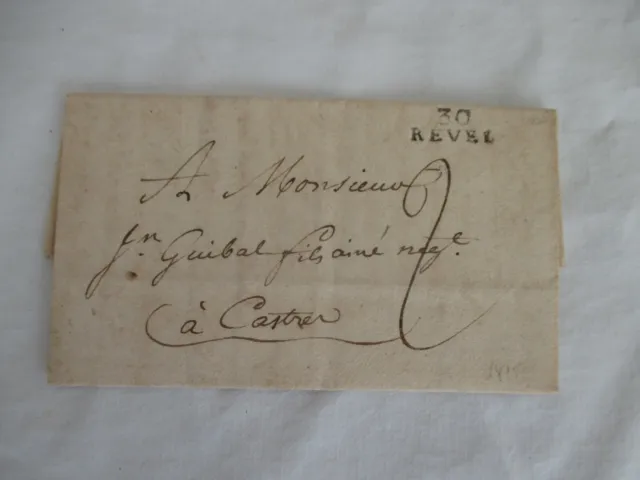 30
REVEL
A Monsieur
Jn. Guibal fils ainé negt.
à Castres
2